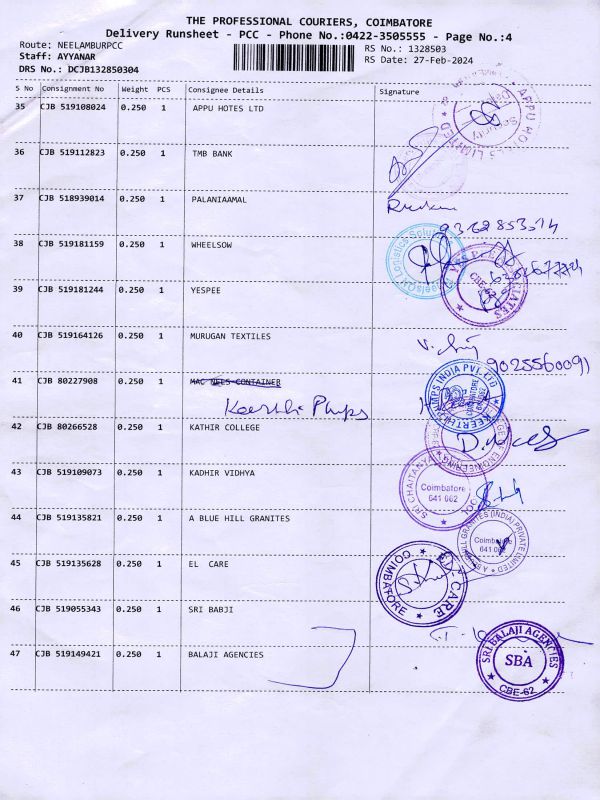 THE PROFESSIONAL COURIERS, COIMBATORE
Delivery Runsheet - PCC - Phone No.:0422-3505555 - Page No.:4
Route: NEELAMBURPCC RS No.: 1328503
Staff: AYYANAR RS Date: 27-Feb-2024
DRS No.: DCJB132850304
S No Consignment No Weight PCS Consignee Details Signature
35 CJB 519108024 0.250 1 APPU HOTES LTD
36 CJB 519112823 0.250 1 TMB BANK
37 CJB 518939014 0.250 1 PALANIAAMAL
38 CJB 519181159 0.250 1 WHEELSOW
39 CJB 519181244 0.250 1 YESPEE
YESPEE
CBE-62
40 CJB 519164126 0.250 1 MURUGAN TEXTILES
9025560091
41 CJB 80227908 0.250 1 MAC NELS CONTAINER
Keerthi Pumps
42 CJB 80266528 0.250 1 KATHIR COLLEGE
43 CJB 519109073 0.250 1 KADHIR VIDHYA
SRI CHAITANYA
Coimbatore
641 062
44 CJB 519135821 0.250 1 A BLUE HILL GRANITES
GRANITES (INDIA) PRIVATE LIMITED
Coimbatore
641 062
45 CJB 519135628 0.250 1 EL CARE
EL-CARE
COIMBATORE
46 CJB 519055343 0.250 1 SRI BABJI
47 CJB 519149421 0.250 1 BALAJI AGENCIES
SRI BALAJI AGENCIES
SBA
CBE-62